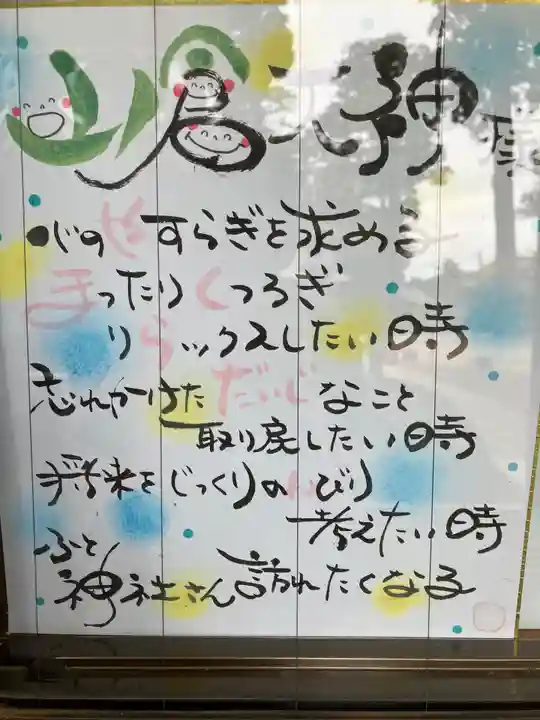 山倉大神様
心のやすらぎを求める
まったりくつろぎ
リラックスしたい時
忘れかけただいじなこと
取り戻したい時
将来をじっくりのんびり
考えたい時
ふと
神社さん訪れたくなる